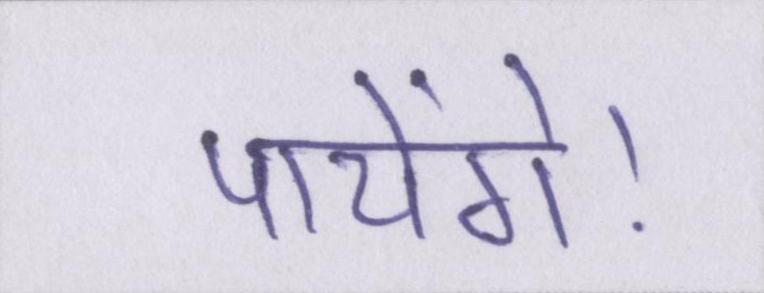 पायेंगे!